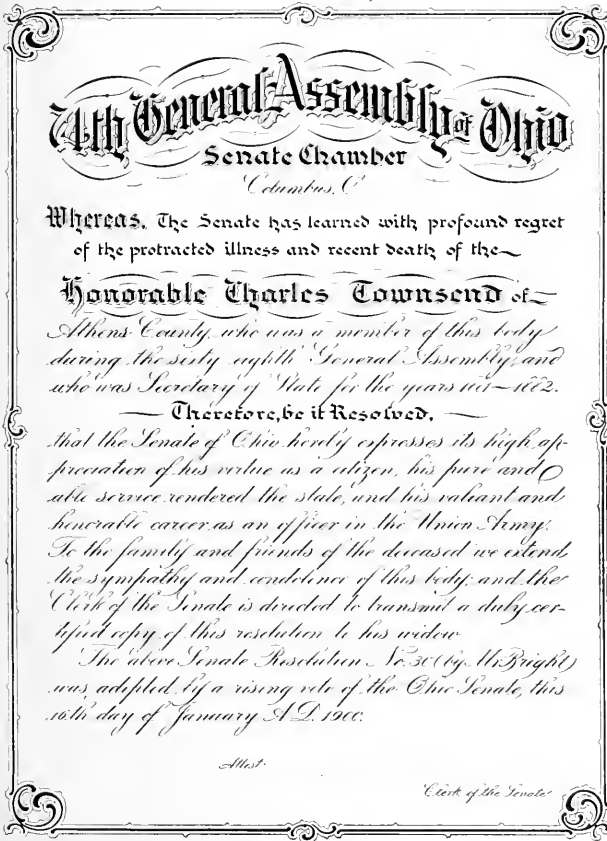 74th General Assembly of Ohio
Senate Chamber
Columbus, O
Whereas, The Senate has learned with profound regret
of the protracted illness and recent death of the
Honorable Charles Townsend of
Athens County, who was a member of this body
during the sixty eighth General Assembly, and
who was Secretary of State for the years 1881–1882.
Therefore, be it Resolved,
that the Senate of Ohio hereby expresses its high ap-
preciation of his virtue as a citizen, his pure and
able service rendered the state, and his valiant and
honorable career as an officer in the Union Army.
To the family and friends of the deceased we extend
the sympathy and condolence of this body; and the
Clerk of the Senate is directed to transmit a duly cer-
tified copy of this resolution to his widow
The above Senate Resolution No. 30 (by Mr Bright)
was adopted by a rising vote of the Ohio Senate, this
16th day of January A.D. 1900.
Attest.
Clerk of the Senate